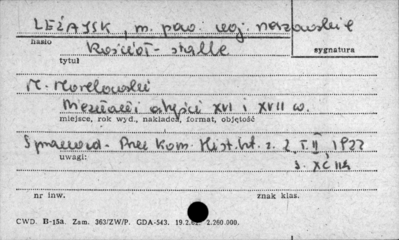 LEŻAJSK, m. pow. woj. rzeszowskie
hasło
Kościół - stalle
sygnatura
tytuł
M. Morelowski
XVI i XVII w.
miejsce, rok wyd., nakładca, format, objętość
Sprawozd. Prac Kom. Hist. szt. z. 2 T. II 1922
uwagi:
s. XC
nr inw.
znak klas.
CWD. B-15a. Zam. 363/ZW/P. GDA-543. 2.260.000.